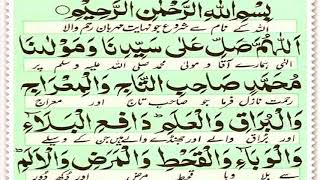 بِسْمِ اللهِ الرَّحْمٰنِ الرَّحِيْمِ
اللہ کے نام سے شروع جو نہایت مہربان رحم والا
اَللّٰهُمَّ صَلِّ عَلٰى سَيِّدِنَا وَمَوْلٰىنَا
الٰہی ہمارے آقا و مولیٰ محمد صلی اللہ علیہ وسلم پر
مُحَمَّدٍ صَاحِبِ التَّاجِ وَالْمِعْرَاجِ
رحمت نازل فرما جو صاحب تاج اور معراج
وَالْبُرَاقِ وَالْعَلَمِ دَافِعِ الْبَلَاءِ
اور براق والے اور جھنڈے والے ہیں جن کے وسیلے
وَالْوَبَاءِ وَالْقَحْطِ وَالْمَرَضِ وَالْاَلَمِ
سے بلا وبا قحط مرض اور دکھ دور